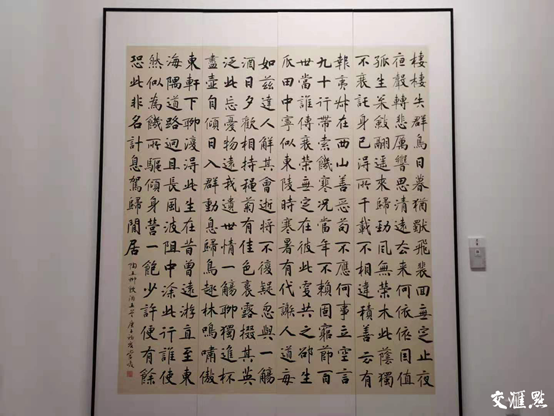 棲棲失群鳥日暮猶獨飛裴回無定止夜
夜聲轉悲厲響思清遠去來何依依因值
孤生松斂翮遙來歸勁風無榮木此蔭獨
不衰託身已得所千載不相違積善云有
報夷叔在西山善惡苟不應何事立空言
九十行帶索飢寒況當年不賴固窮節百
世當誰傳衰榮無定在彼此更共之邵生
瓜田中寧似東陵時寒暑有代謝人道每
如茲達人解其會逝將不復疑忽與一觴
酒日夕歡相持秋菊有佳色裛露掇其英
泛此忘憂物遠我遺世情一觴聊獨進杯
盡壺自傾日入群動息歸鳥趨林鳴嘯傲
東軒下聊復得此生在昔曾遠遊直至東
海隅道路迥且長風波阻中塗此行誰使
然似為飢所驅傾身營一飽少許便有餘
恐此非名計息駕歸閑居
陶五柳飲酒五首
交汇点